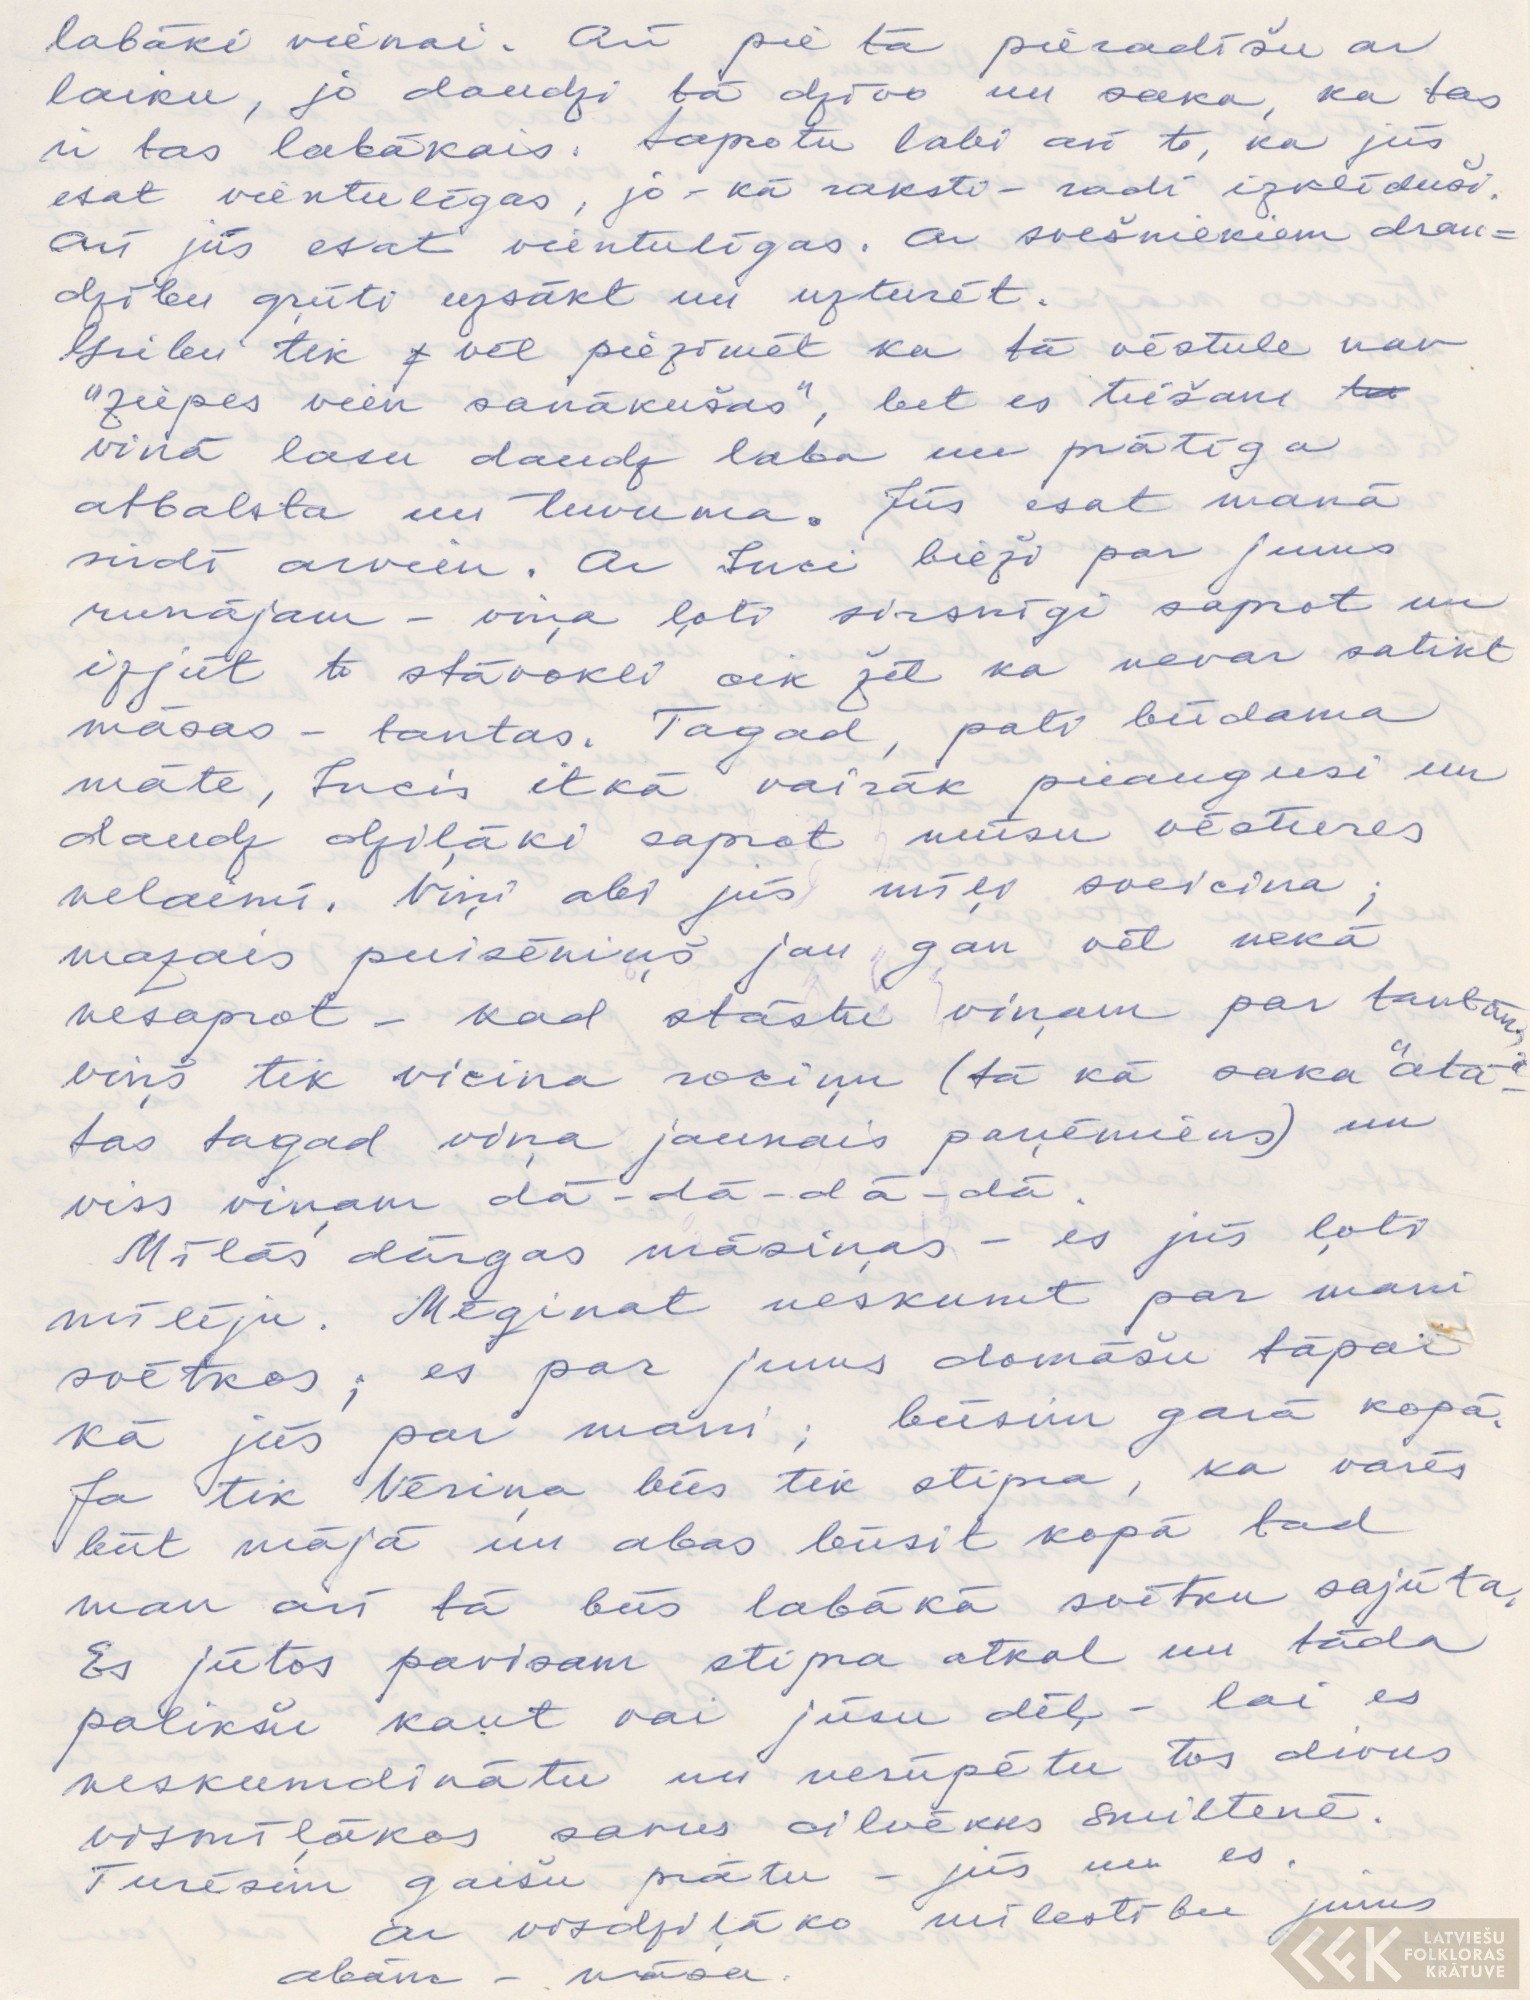 labāki vienai. Arī pie tā pieradīšu ar
laiku, jo daudzi tā dzīvo un saka, ka tas
ir tas labākais. Saprotu labi arī to, ka jūs
esat vientulīgas, jo - kā raksti - radi izklīduši.
Arī jūs esat vientulīgas. Ar svešniekiem drau=
dzību grūti uzsākt un uzturēt.
Gribu tik vēl piezīmēt ka tā vēstule nav
"ziepes vien sanākušas", bet es tiešam
viņā lasu daudz laba un prātīga
atbalsta un tuvuma. Jūs esat manā
sirdī arvien. Ar Luci bieži par jums
runājam - viņa ļoti sirsnīgi saprot un
izjūt to stāvokli cik žēl ka nevar satikt
māsas - tantas. Tagad, pati būdama
māte, Lucis itkā vairāk pieaugusi un
daudz dziļāki saprot mūsu vēstures
nelaimi. Viņi abi jūs mīļi sveicina;
mazais puisēniņš jau gan vēl nekā
nesaprot - kad stāstu viņam par tantām,
viņš tik vicina rociņu (tā kā saka "atā" -
tas tagad viņa jaunais paņēmiens) un
viss viņam dā-dā-dā-dā.
Mīļās dārgas māsiņas - es jūs ļoti
mīlēju. Mēģinat neskumt par mani
svētkos; es par jums domāšu tāpat
kā jūs par mani; būsim garā kopā.
Ja tik Vēriņa būs tik stipra, ka varēs
būt mājā un abas būsit kopā tad
man arī tā būs labākā svētku sajūta.
Es jūtos pavisam stipra atkal un tāda
palikšu kaut vai jūsu dēļ - lai es
neskumdinātu un nerūpētu tos divus
vismīļākos savus cilvēkus Smiltenē.
Turēsim gaišu prātu - jūs un es.
Ar visdziļāko mīlestību jums
abām - māsa.
LATVIEŠU
FOLKLORAS
KRĀTUVE